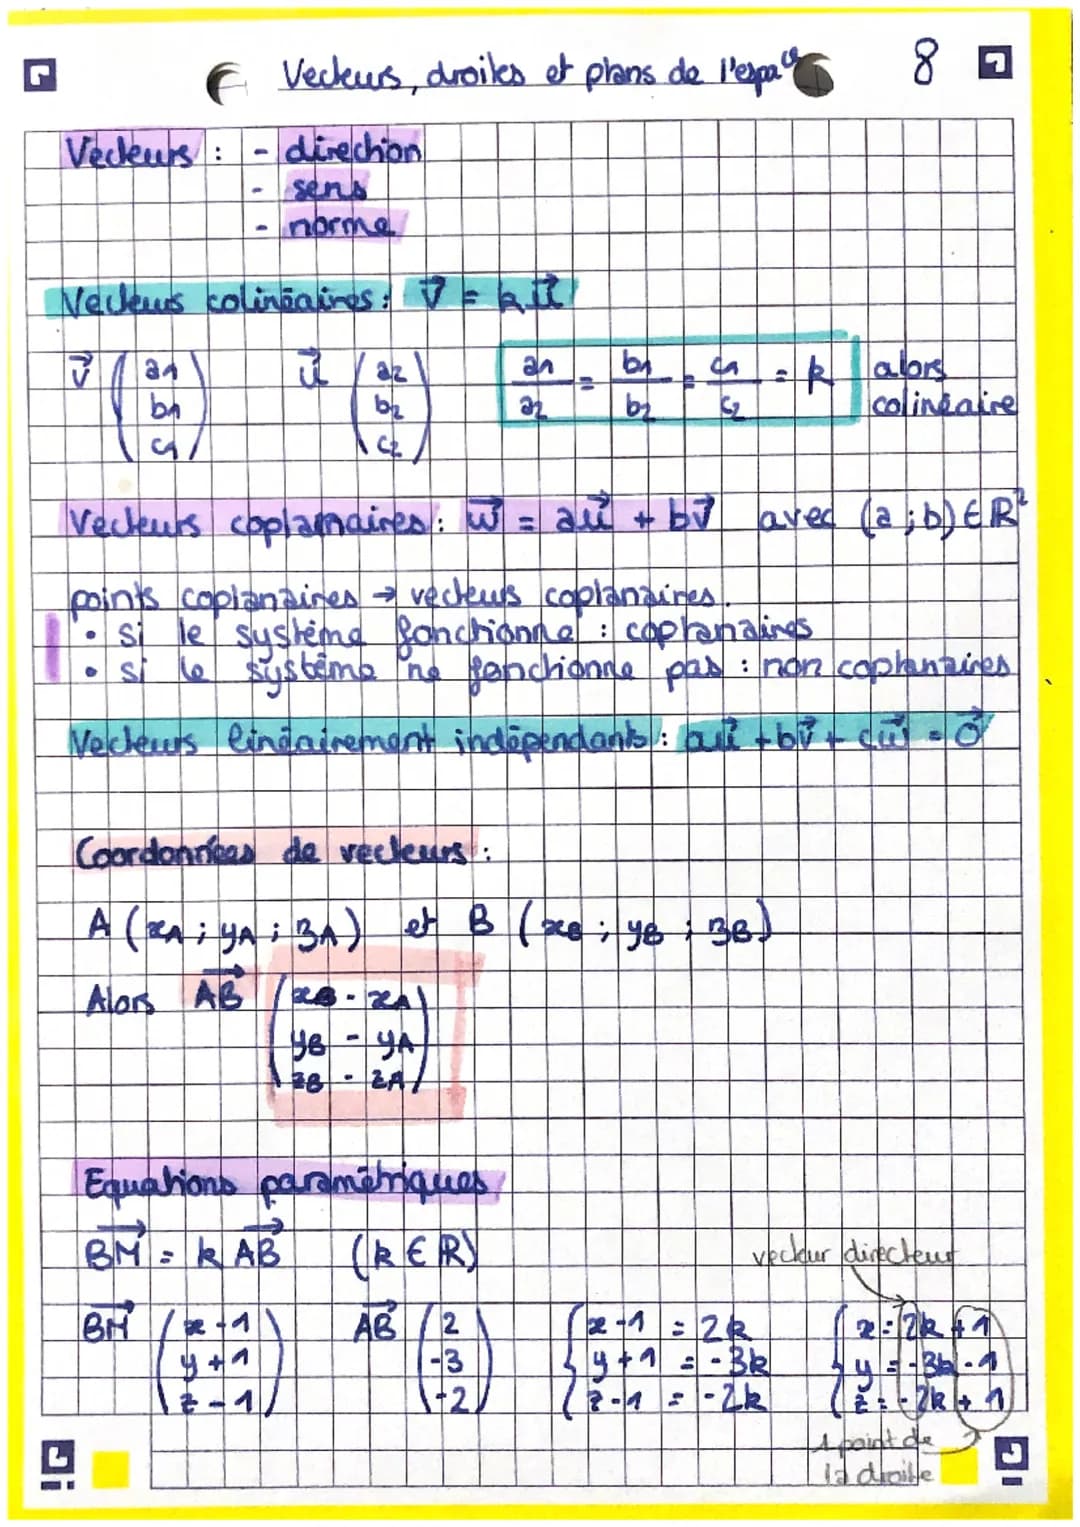 Vecteurs, droites et plans de l'espace 8
Vecteurs : - direction
- sens
- norme
Vecteurs colinéaires : v⃗ = k u⃗
v⃗ (a1 b1 c1) u⃗ (a2 b2 c2) a1/a2 = b1/b2 = c1/c2 = k alors colinéaire
Vecteurs coplanaires : w⃗ = au⃗ + bv⃗ avec (a ; b) ∈ ℝ²
points coplanaires → vecteurs coplanaires.
• si le système fonctionne : coplanaires
• si le système ne fonctionne pas : non coplanaires
Vecteurs linéairement indépendants : au⃗ + bv⃗ + cw⃗ = 0⃗
Coordonnées de vecteurs :
A (xA ; yA ; zA) et B (xB ; yB ; zB)
Alors AB⃗ (xB - xA
yB - yA
zB - zA)
Equations paramétriques
BM⃗ = k AB⃗ (k ∈ ℝ)
vecteur directeur
BM⃗ (x - 1 AB⃗ (2 { x - 1 = 2k { x = 2k + 1
y + 1 -3 y + 1 = -3k y = -3k - 1
z - 1) -2) z - 1 = -2k z = -2k + 1
1 point de
la droite